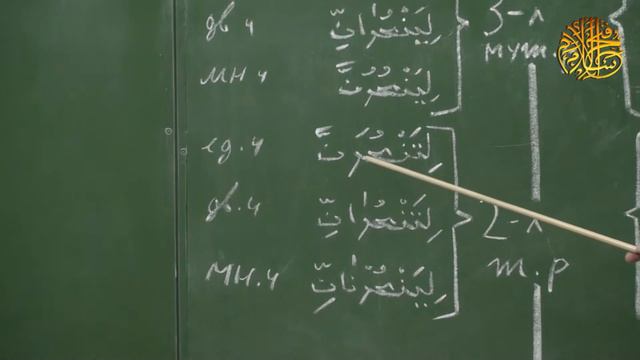 дв ч لِيَنْصُرَانِّ 3-л
муж.
мн ч لِيَنْصُرُنَّ
ед.ч لِتَنْصُرَنَّ
дв.ч لِتَنْصُرَانِّ 3-л
мн.ч لِيَنْصُرْنَانِّ ж.р